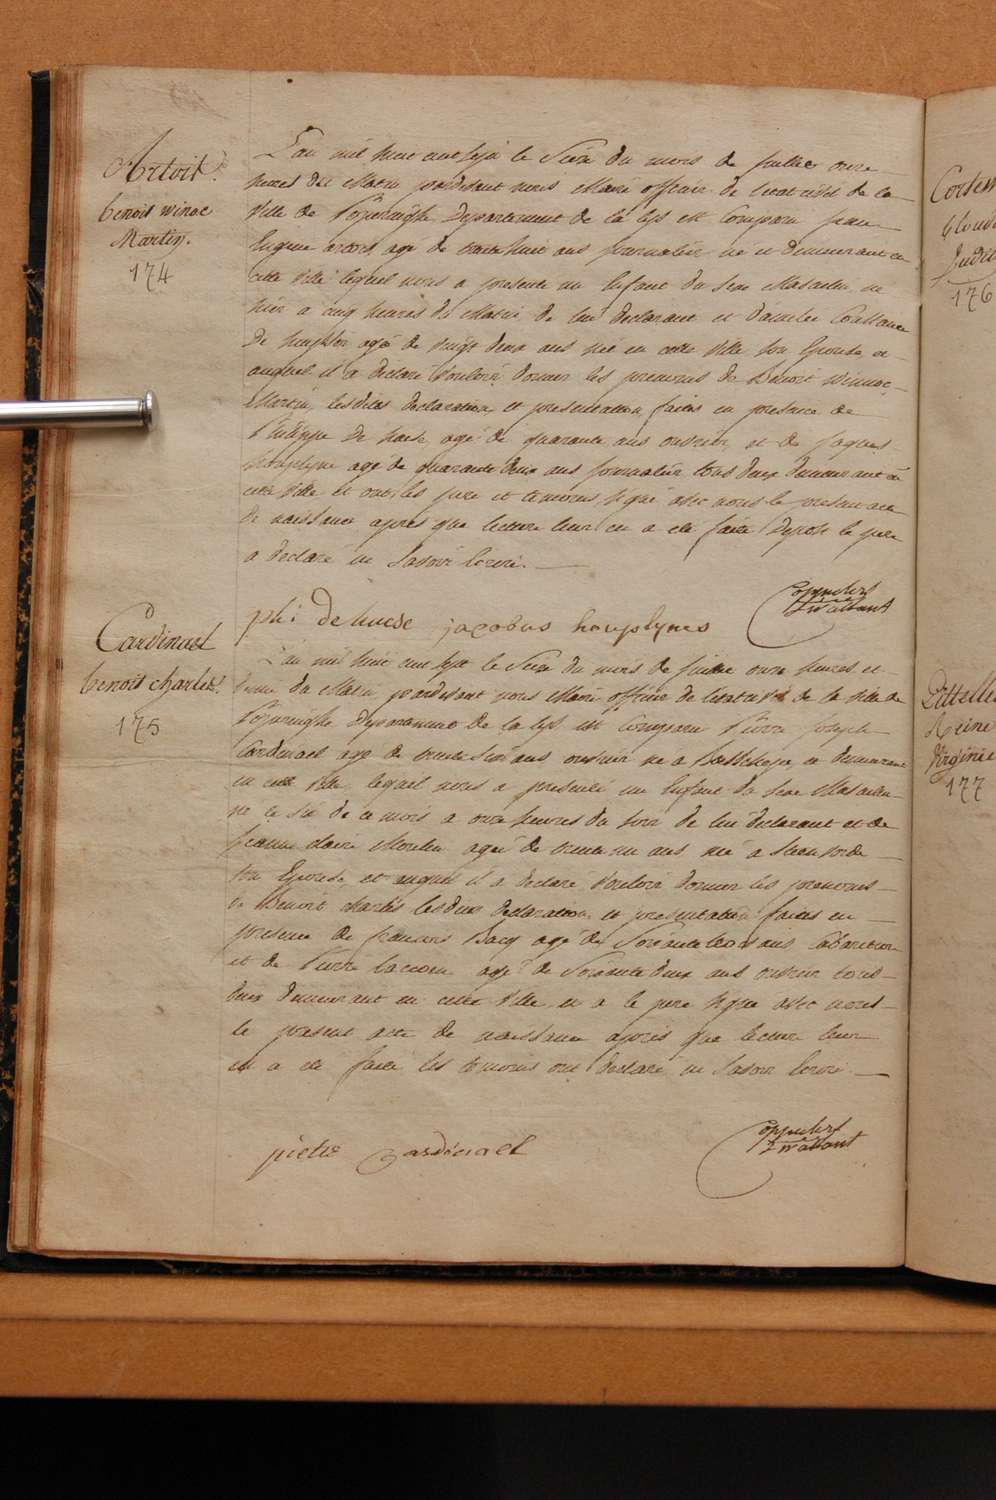 Artoit
benoit winoc
Martin.
174
L'an mil huit cent sept le Seize du mois de Juillet onze
heures du Matin pardevant nous Maire officier de l'etat civil de la
Ville de Poperinghe Departement de la Lys est Comparu jean
Eugene artoit agé de trente huit ans journalier né et demeurant en
cette Ville lequel nous a presenté un Enfant du Sexe Masculin né
hier a cinq heures du Matin de lui declarant et Constance
De agé de vingt deux ans née en cette Ville Son Epouse et
auquel il a declaré Vouloir donner les prenoms de Benoit winoc
Martin, lesdites declaration et presentation faites en presence de
Philippe De haese agé de quarante ans ouvrier et de Jaques
houplyne agé de quarante deux ans journalier tous deux demeurant en
cette Ville et ont les pere et temoins signé avec nous le present acte
De naissance apres que lecture leur en a eté faite Deposé le pere
a declaré ne Savoir Ecrire.
phi dehaese jacobus houplynes
Cardinael
benoit charles
175
L'an mil huit cent sept le Seize du mois de Juillet onze heures et
demie du Matin pardevant nous Maire officier de l'etat civil de la ville de
Poperinghe Departement de la Lys est Comparu Pierre Joseph
Cardinael agé de trente Six ans ouvrier né a et demeurant
en cette Ville lequel nous a presenté un Enfant du Sexe Masculin
né le de ce mois a onze heures du Soir de lui declarant et de
jeanne Claire agé de trente un ans née a
Son Epouse, et auquel il a declaré Vouloir donner les prenoms
de Benoit charles lesdites declaration et presentation faites en
presence de francois Bacq agé de Soixante trois ans Cabaretier
et de Pierre agé de Soixante deux ans ouvrier tous
deux demeurant en cette Ville, et a le pere signé avec nous
le present acte de naissance après que lecture leur
en a eté faite les temoins ont declaré ne Savoir Ecrire.
pietre Cardinael
Cortem
176
Reine
Virginie
177